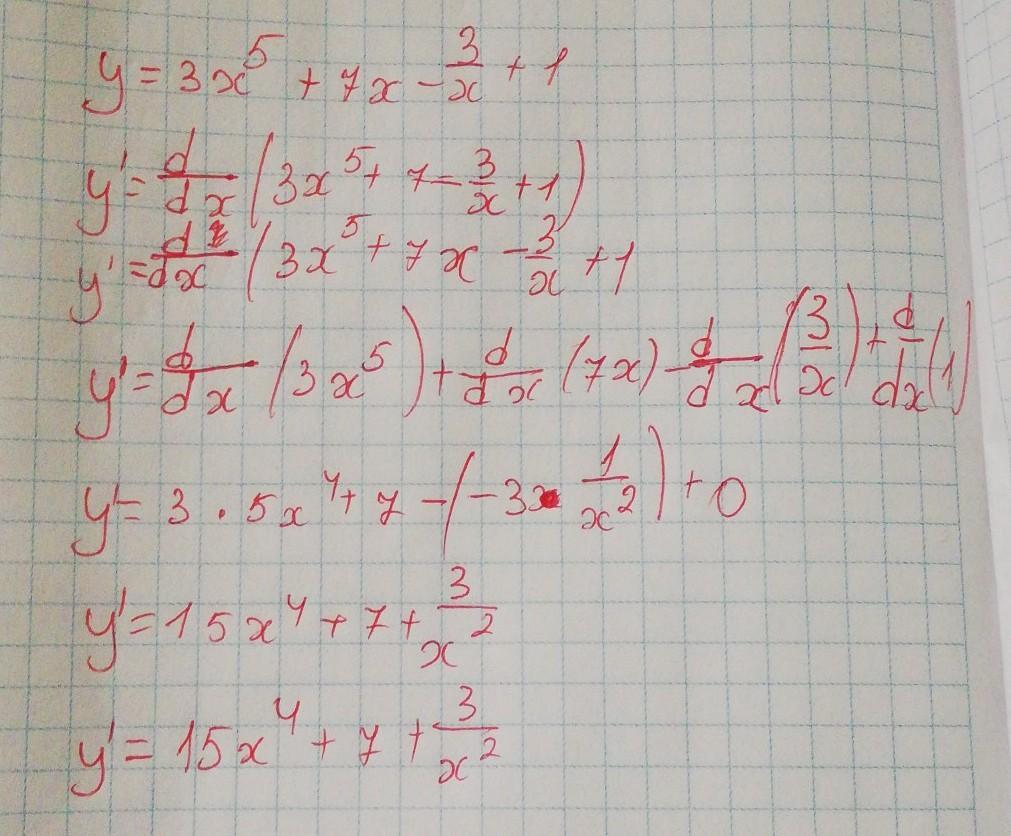 y = 3x⁵ + 7x - 3/x + 1
y' = d/dx (3x⁵ + 7 - 3/x + 1)
y' = d/dx (3x⁵ + 7x - 3/x + 1
y' = d/dx (3x⁵) + d/dx (7x) - d/dx (3/x) + d/dx (1)
y' = 3 · 5x⁴ + 7 - (-3 · 1/x²) + 0
y' = 15x⁴ + 7 + 3/x²
y' = 15x⁴ + 7 + 3/x²